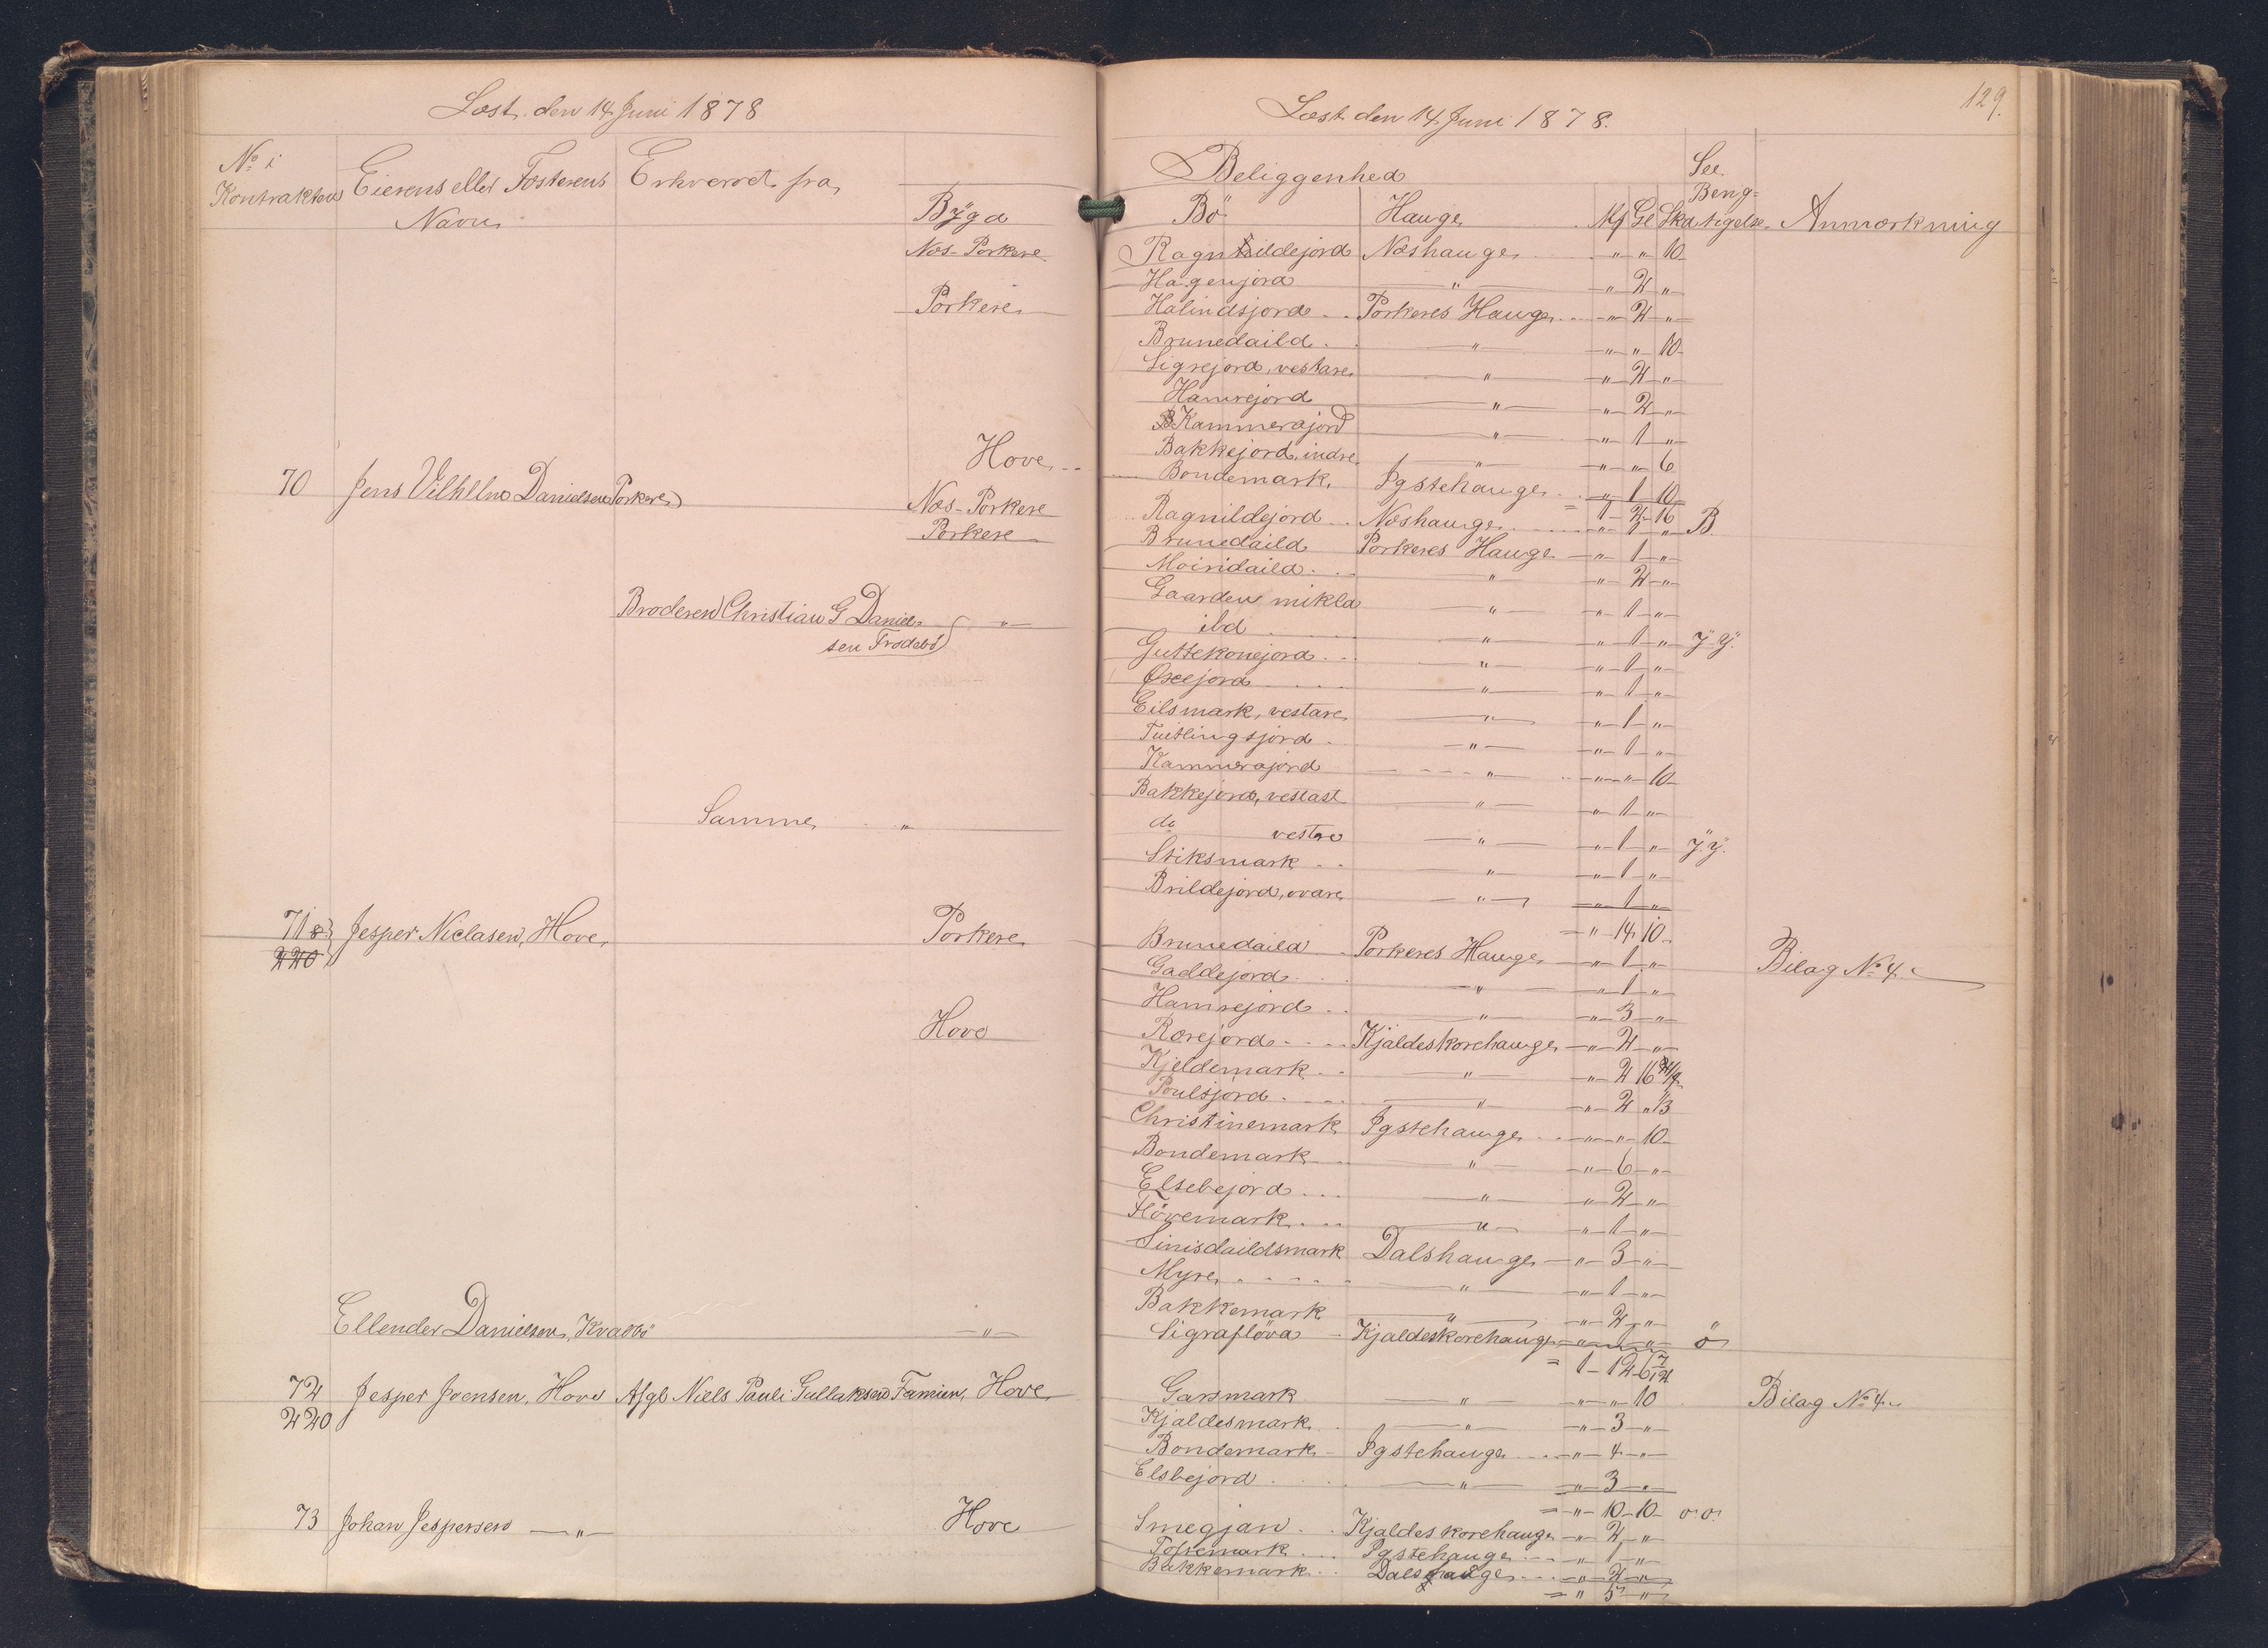 Læst den 14 Juni 1878
No i
Kontrakten
Eierens eller Fæsterens
Navn
Erhvervet fra
Bÿgd
Næs-Porkere
Porkere
Hove
70 Jens Vilhelm Danielsen Porkere
Næs-Porkere
Porkere
Broderen Christian G Daniel- "
sen Frodebö
Samme "
71 & Jesper Niclasen, Hove Porkere
220
Hove
Ellender Danielsen, Kvalbö "
72 Jesper Joensen, Hove Afgl Niels Pauli Gullaksen Famien, Hove
220
73 Johan Jespersen " Hove
129.
Læst den 14 Juni 1878.
Beliggenhed
Bö Hauge Mk Gl Sk See Beng=
 tigelse Anmærkning
Ragnhildejord Næshauge " " 10
Hagenjord " " 2 "
Halindsjord Porkeres Hauge " 2 "
Brunedaild " " " 10
Sigrejord, vestare " " 2 "
Hamrejord " " 2 "
Kammerajord " " 1 "
Bakkejord, indre " " " 6
Bondemark Igstehauge " 1 10
= 1 2 16
Ragnildejord Næshauge " 1 " B.
Brunedaild Porkeres Hauge " 1 "
Moinidaild " " 2 "
Gaarden mikla " " 1 "
ibd " " 1 " ÿ.ÿ.
Guttekonejord " " 1 "
Øxejord " " 1 "
Eilsmark, vestare " " 1 "
Tuitlingsjord " " 1 "
Kammerajord " " " 10
Bakkejord, vestast " " 1 "
do vestre " " 1 " ÿ.ÿ.
Stiksmark " " 1 "
Brildejord, ovare " " 1 "
= " 14 10
Brunedaild Porkeres Hauge " 1 " Bilag No 4.
Gaddejord " " 1 "
Hamrejord " " 3 "
Rorejord Kjaldeskorehauge " 2 "
Kjeldemark " " 2 16
Poulsjord " " 2 " 1/3
Christinemark Igstehauge " " 10
Bondemark " " 6 "
Elsebejord " " 2 "
Flövemark " " 1 "
Sinisdaildsmark Dalshauge " 3 "
Myre " " 1 "
Bakkemark " " 2 "
Sigraflöva Kjaldeskorehauge ö
= 1 12 6 7/12
Garsmark " " " 10 Bilag No 4.
Kjaldesmark " " 3 "
Bondemark Igstehauge " 4 "
Elsbejord " " 3 "
= " 10 10 o.o.
Smegjan Kjaldeskorehauge " 2 "
Toftemark Igstehauge " 1 "
Bakkemark Dalshauge " 2 "
= " 5 "